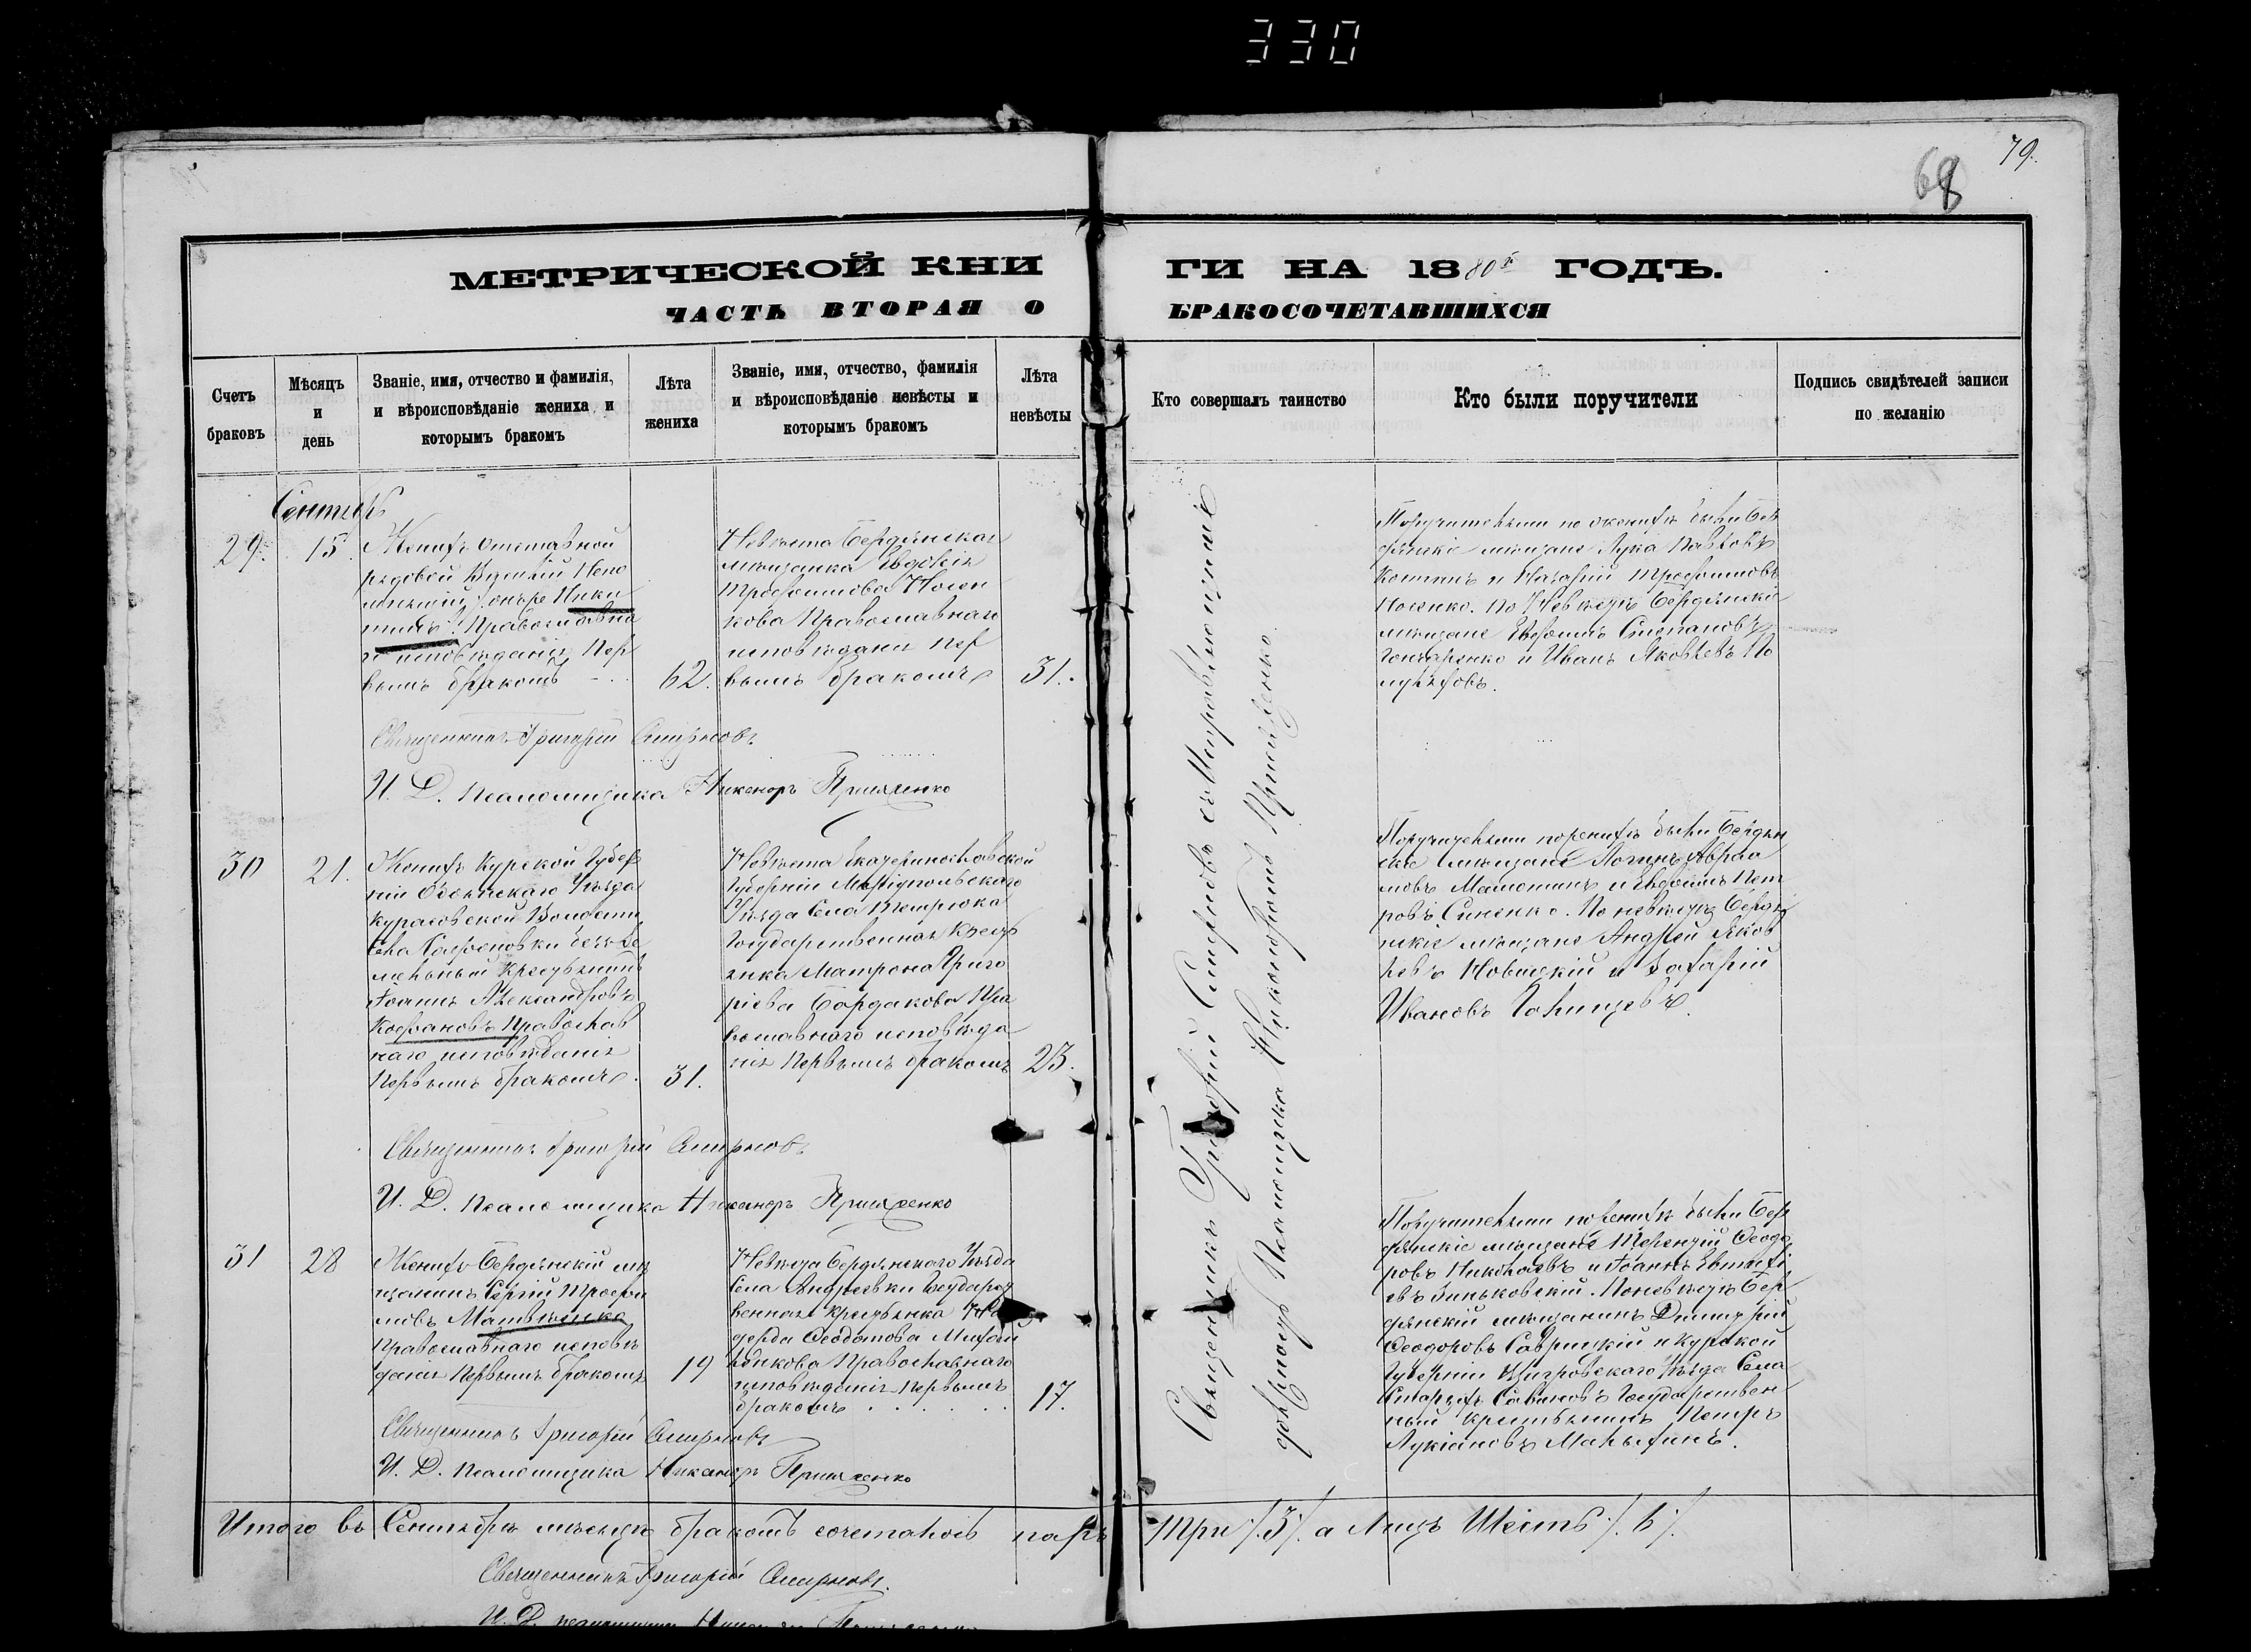 330
79.
68
МЕТРИЧЕСКОЙ КНИ ГИ НА 1880й ГОДЪ.
ЧАСТЬ ВТОРАЯ О БРАКОСОЧЕТАВШИХСЯ
Счетъ браковъ
Мѣсяцъ и день
Званіе, имя, отчество и фамилія,
и вѣроисповѣданіе жениха и
которымъ бракомъ
Лѣта жениха
Званіе, имя, отчество, фамилія
и вѣроисповѣданіе невѣсты и
которымъ бракомъ
Лѣта невѣсты
Кто совершалъ таинство
Кто были поручители
Подпись свидѣтелей записи
по желанію
Сентябрь
29.
15.
Женихъ Отставной
рядовой
Ники
тинъ. Православна
го исповѣданія Пер
вымъ бракомъ
62.
Невѣста Бердянская
мѣщанка Евдокія
Трофимова Носен
кова Православнаго
исповѣданія пер
вымъ бракомъ
31.
Поручителями по женихѣ были Бер
дянскіе мѣщане Лука Павловъ
и Назарій Трофимовъ
Носенко. По Невѣстѣ Бердянскіе
мѣщане Степановъ
Гончаренко и Иванъ Яковлевъ По
Священникъ Григорій Смирновъ
И. Д. Псаломщика Никаноръ
30
21.
Женихъ Курской Губер
ніи Уѣзда
Волости
Села
Крестьянинъ
Іоаннъ Александровъ
Кофановъ Православ
наго исповѣданія
Первымъ бракомъ.
31.
Невѣста Екатеринославской
Губерніи Маріупольскаго
Уѣзда Села Темрюка
Государственная Кресть
янка Матрона Григо
ріева Бардакова Пра
вославнаго исповѣда
нія Первымъ бракомъ
23.
Поручителями по женихѣ были Бердян
скіе мѣщане Логинъ Авраа
мовъ и Евдокимъ Пет
ровъ Синенко. По невѣстѣ Бердя
нскіе мѣщане Андрей Яков
левъ Новицкій и Захарій
Ивановъ Голинцевъ.
Священникъ Григорій Смирновъ
И. Д. Псаломщика Никаноръ
31
28
Женихъ Бердянскій мѣ
щанинъ Сергій Трофи
мовъ Матвѣенко
Православнаго исповѣ
данія Первымъ бракомъ
19
Невѣста Бердянскаго Уѣзда
Села Андреевки Государст
венная Крестьянка
Православнаго
исповѣданія Первымъ
бракомъ
17.
Поручителями по женихѣ были Бер
дянскіе мѣщане Терентій Феодо
ровъ Николаевъ и Іоаннъ Евтихі
евъ Зиньковскій. По невѣстѣ Бер
дянскій мѣщанинъ Димитрій
Феодоровъ Саврицкій и Курской
Губерніи Щигровскаго Уѣзда Села
Государствен
ный крестьянинъ Петръ
Лукіановъ Малыхинъ.
Священникъ Григорій Смирновъ
И. Д. Псаломщика Никаноръ
Священникъ Григорій Смирновъ съ Исправляющимъ
должность Псаломщика Никаноромъ
Итого въ Сентябрѣ мѣсяцѣ бракомъ сочеталось паръ Три /.3./. а Лицъ Шесть /. 6 /.
Священникъ Григорій Смирновъ.
И. Д. псаломщика